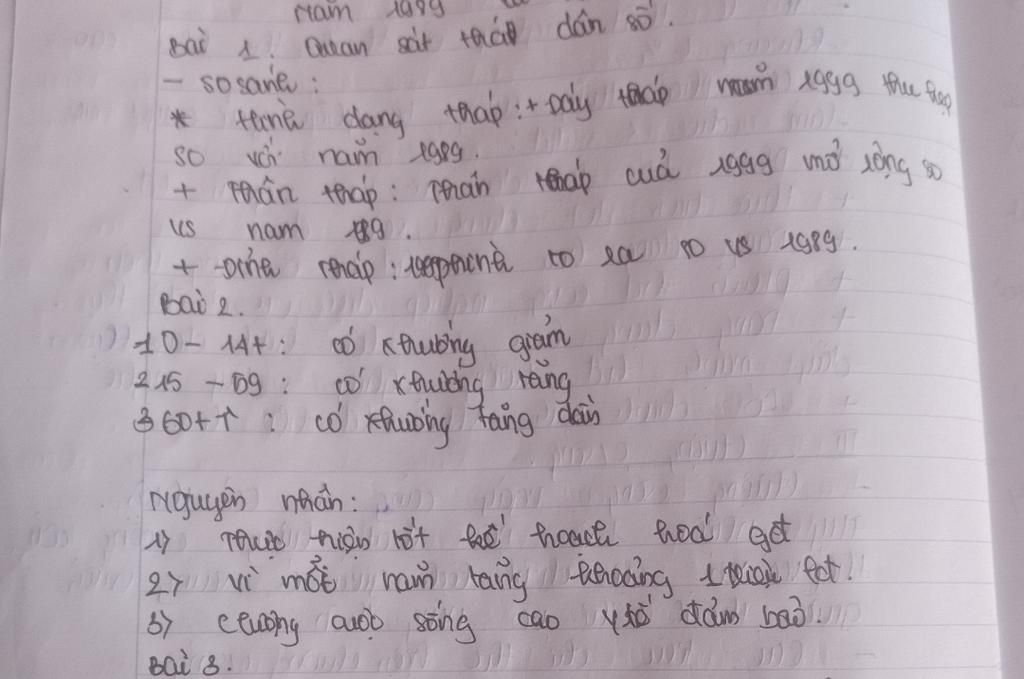 Năm 1989
Bài 1: Quan sát tháp dân số.
- so sánh:
* hình dạng tháp: + Đáy tháp năm 1999 thu hẹp
so với năm 1989.
+ Thân tháp: Thân tháp của 1999 mở rộng so
vs năm 89.
+ Đỉnh tháp: phình to ra so vs 1989.
Bài 2.
1 0 - 14t: có xhướng giảm
2 15 - 59: có xhướng tăng
3 60t ↑: có xhướng tăng dần
Nguyên nhân:
1) Thực hiện tốt kế hoạch hoá gđ
2) vì mỗi năm tăng khoảng 1 triệu lđ.
3) clượng cuộc sống cao ytế đảm bảo.
Bài 3.